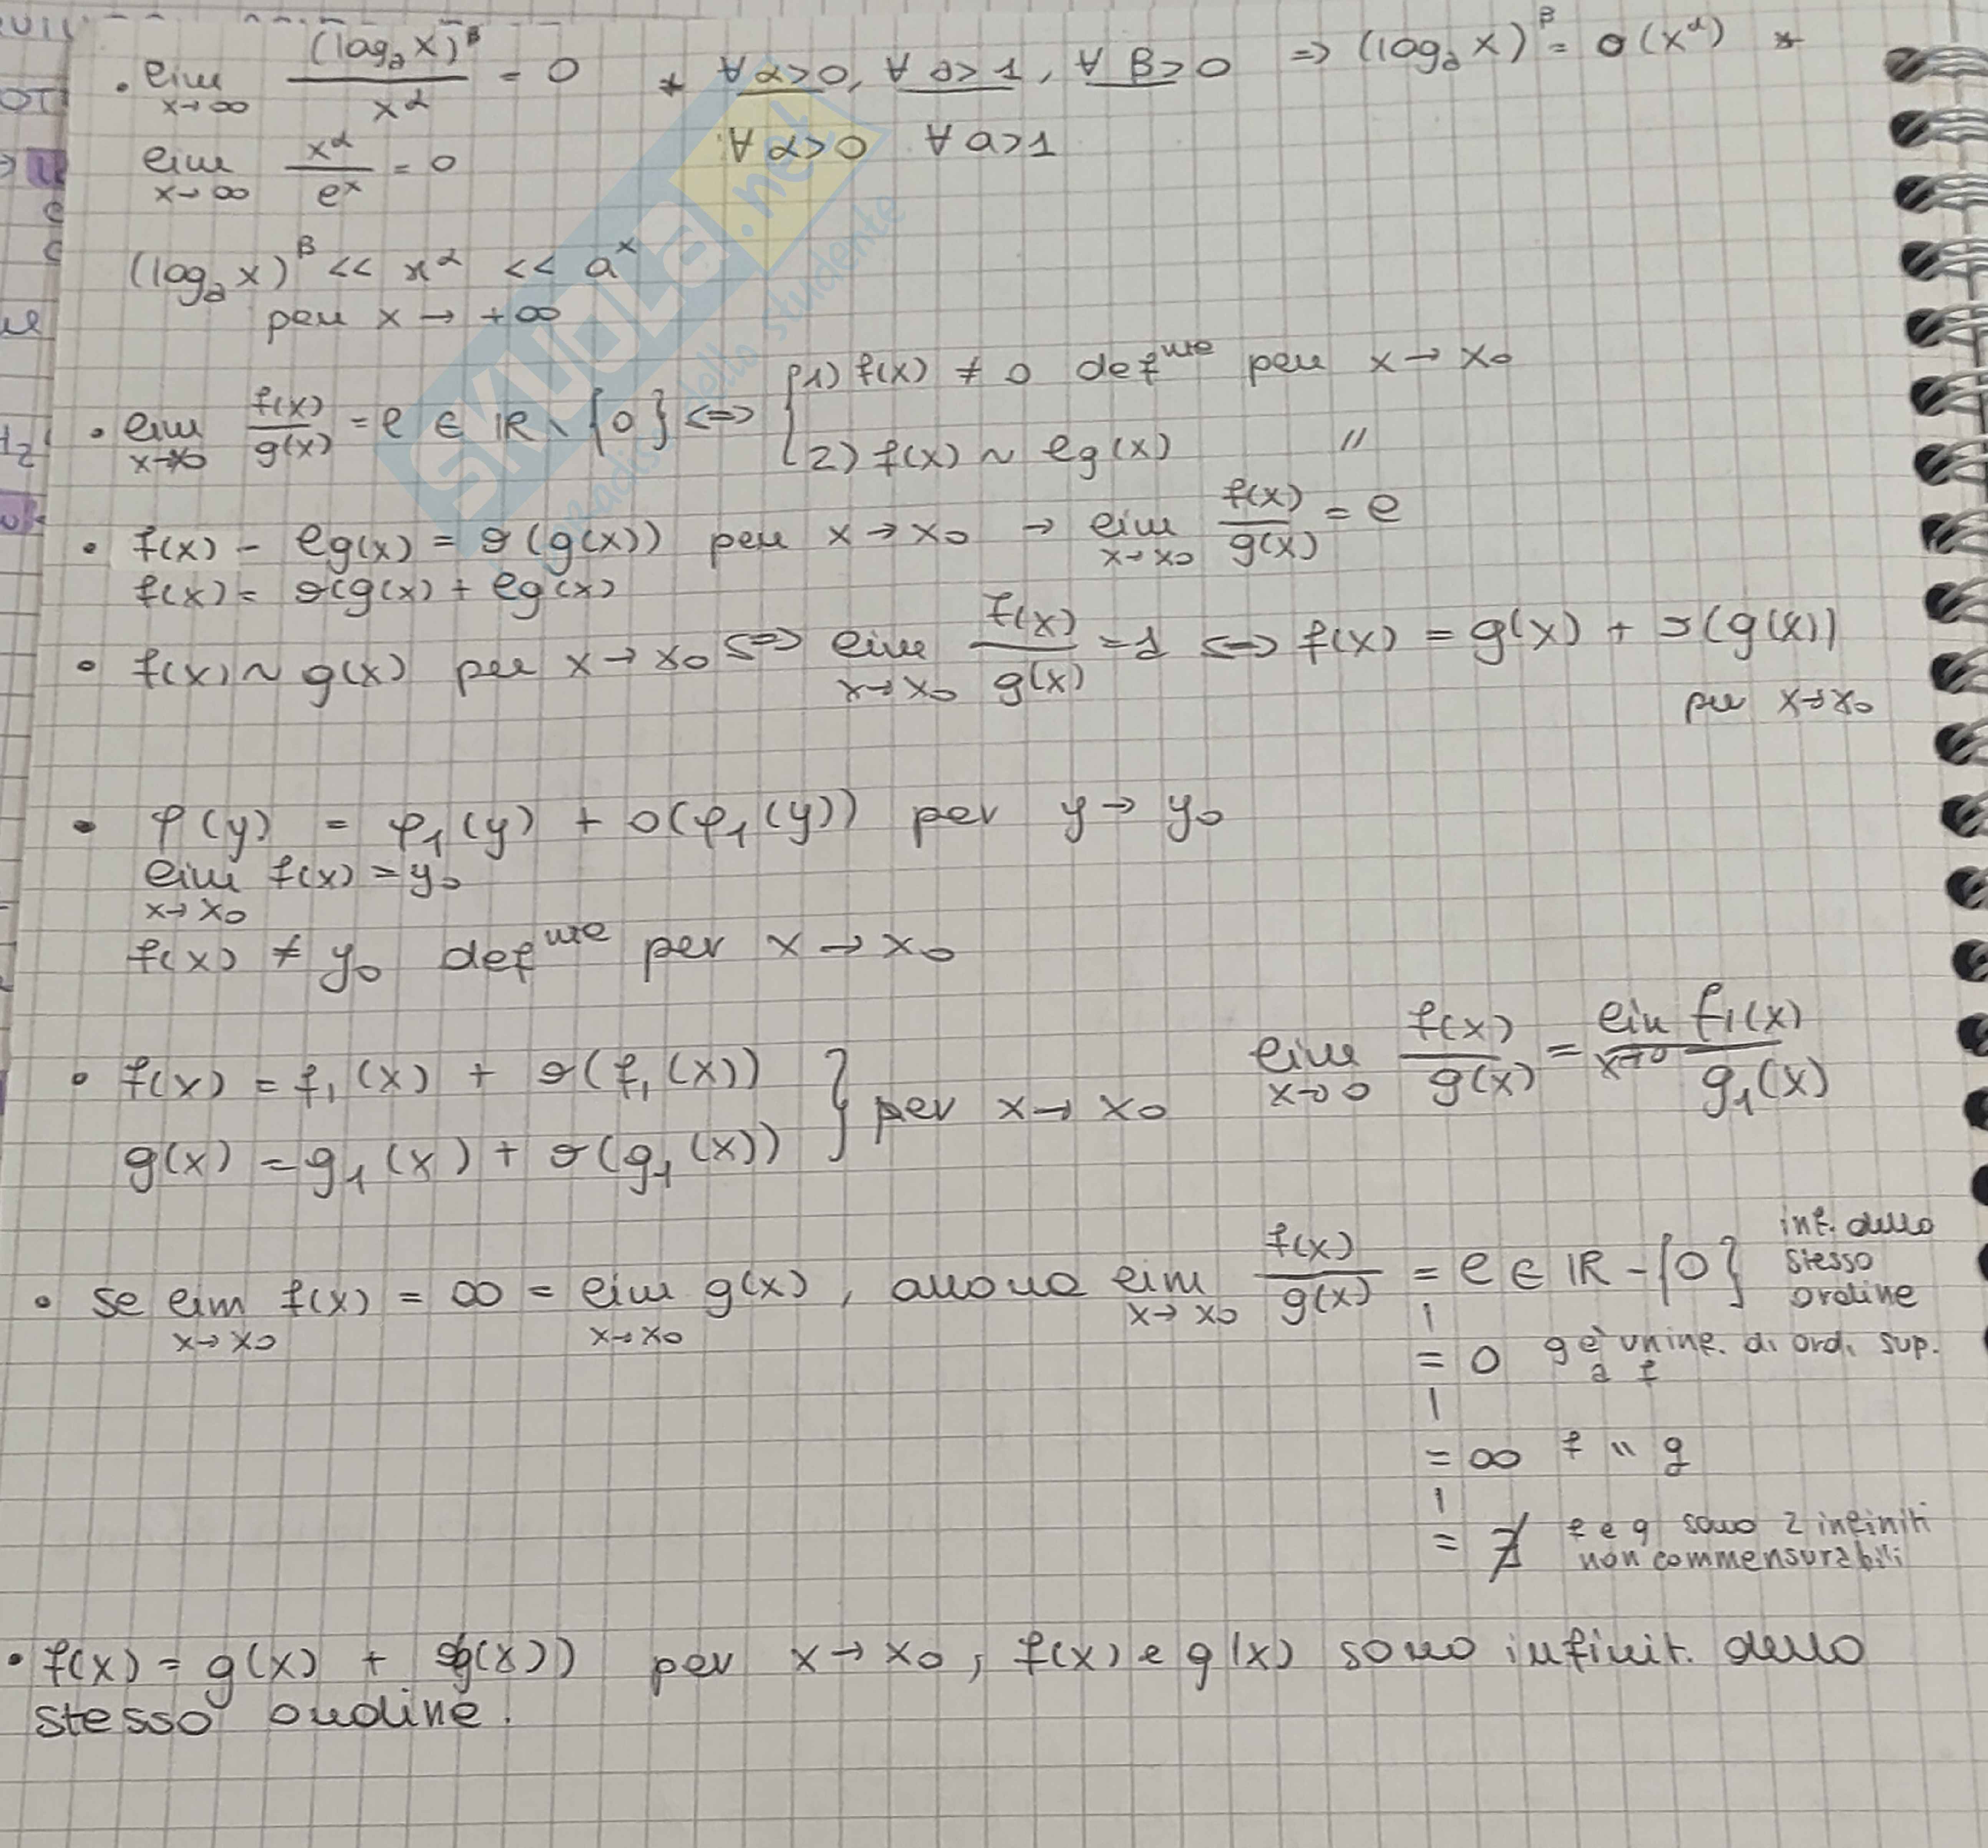 • lim x→∞ (log_a x)^β / x^α = 0 * ∀ α>0, ∀ a>1, ∀ β>0 ⇒ (log_a x)^β = o(x^α) *
lim x→∞ x^α / e^x = 0 ∀ α>0 ∀ a>1
(log_a x)^β << x^α << a^x
per x → +∞
• lim x→x0 f(x)/g(x) = l ∈ ℝ \ {0} ⇔ { 1) f(x) ≠ 0 def^nte per x → x0
2) f(x) ~ l g(x) "
• f(x) - l g(x) = o(g(x)) per x → x0 → lim x→x0 f(x)/g(x) = l
f(x) = o(g(x) + l g(x)
• f(x) ~ g(x) per x → x0 ⇔ lim x→x0 f(x)/g(x) = 1 ⇔ f(x) = g(x) + o(g(x))
per x→x0
• φ(y) = φ1(y) + o(φ1(y)) per y → y0
lim x→x0 f(x) = y0
f(x) ≠ y0 def^nte per x → x0
• f(x) = f1(x) + o(f1(x)) } per x → x0 lim x→0 f(x)/g(x) = lim x→0 f1(x)/g1(x)
g(x) = g1(x) + o(g1(x))
• se lim x→x0 f(x) = ∞ = lim x→x0 g(x), allora lim x→x0 f(x)/g(x) = l ∈ ℝ - {0} inf. dello stesso ordine
= 0 g è un inf. di ord. sup. a f
= ∞ f " g
= ∄ f e g sono 2 infiniti
non commensurabili
• f(x) = g(x) + o(g(x)) per x → x0, f(x) e g(x) sono infinit. dello
stesso ordine.
SKUOLA.net
dello studente